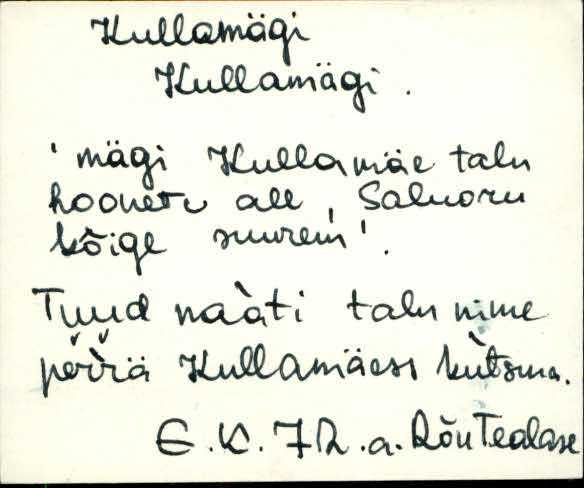 Kullamägi
Kullamägi.
'mägi Kullamäe talu
hoonete all, Saluoru
kõige suurem'.
Tuud naàti talu nime
perrä Kullamäess kùtsma.
E. K.